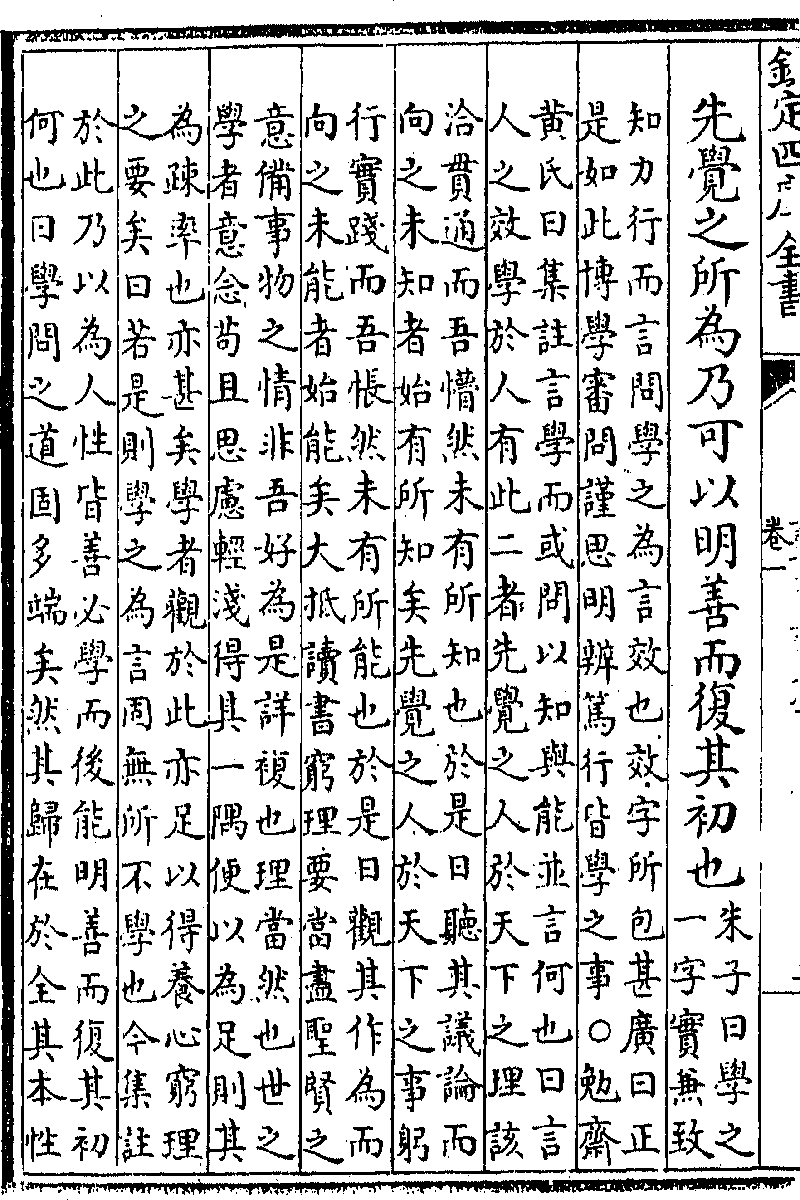 欽定四庫全書
卷一
先覺之所為乃可以明善而復其初也
朱子曰學之
一字實兼致
知力行而言問學之為言效也效字所包甚廣曰正
是如此博學審問謹思明辨篤行皆學之事○勉齋
黃氏曰集註言學而或問以知與能並言何也曰言
人之效學於人有此二者先覺之人於天下之理該
洽貫通而吾懵然未有所知也於是日聽其議論而
向之未知者始有所知矣先覺之人於天下之事躬
行實踐而吾悵然未有所能也於是日觀其作為而
向之未能者始能矣大抵讀書窮理要當盡聖賢之
意備事物之情非吾好為是詳複也理當然也世之
學者意念苟且思慮輕淺得其一隅便以為足則其
為疎率也亦甚矣學者觀於此亦足以得養心窮理
之要矣曰若是則學之為言固無所不學也今集註
於此乃以為人性皆善必學而後能明善而復其初
何也曰學問之道固多端矣然其歸在於全其本性